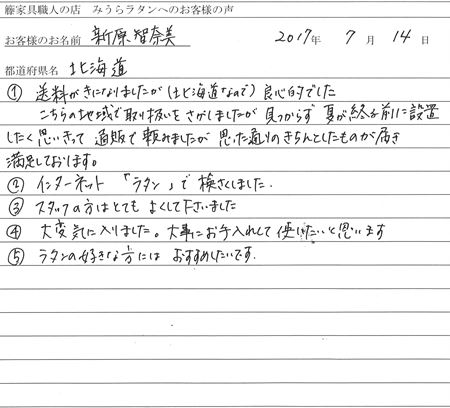 藤家具職人の店 みうらラタンへのお客様の声
お客様のお名前 新原智奈美 2017年 7月 14日
都道府県名 北海道
① 送料がきになりましたが(北海道なので)良心的でした
こちらの地域で取り扱いをさがしましたが見つからず 夏が終る前に設置
したく思いきって 通販で頼みましたが 思った通りのきちんとしたものが届き
満足しております。
② インターネット 「ラタン」で検さくしました.
③ スタッフの方はとても よくして下さいました
④ 大変気に入りました。大事にお手入れして使いたいと思います
⑤ ラタンの好きな方には おすすめしたいです.